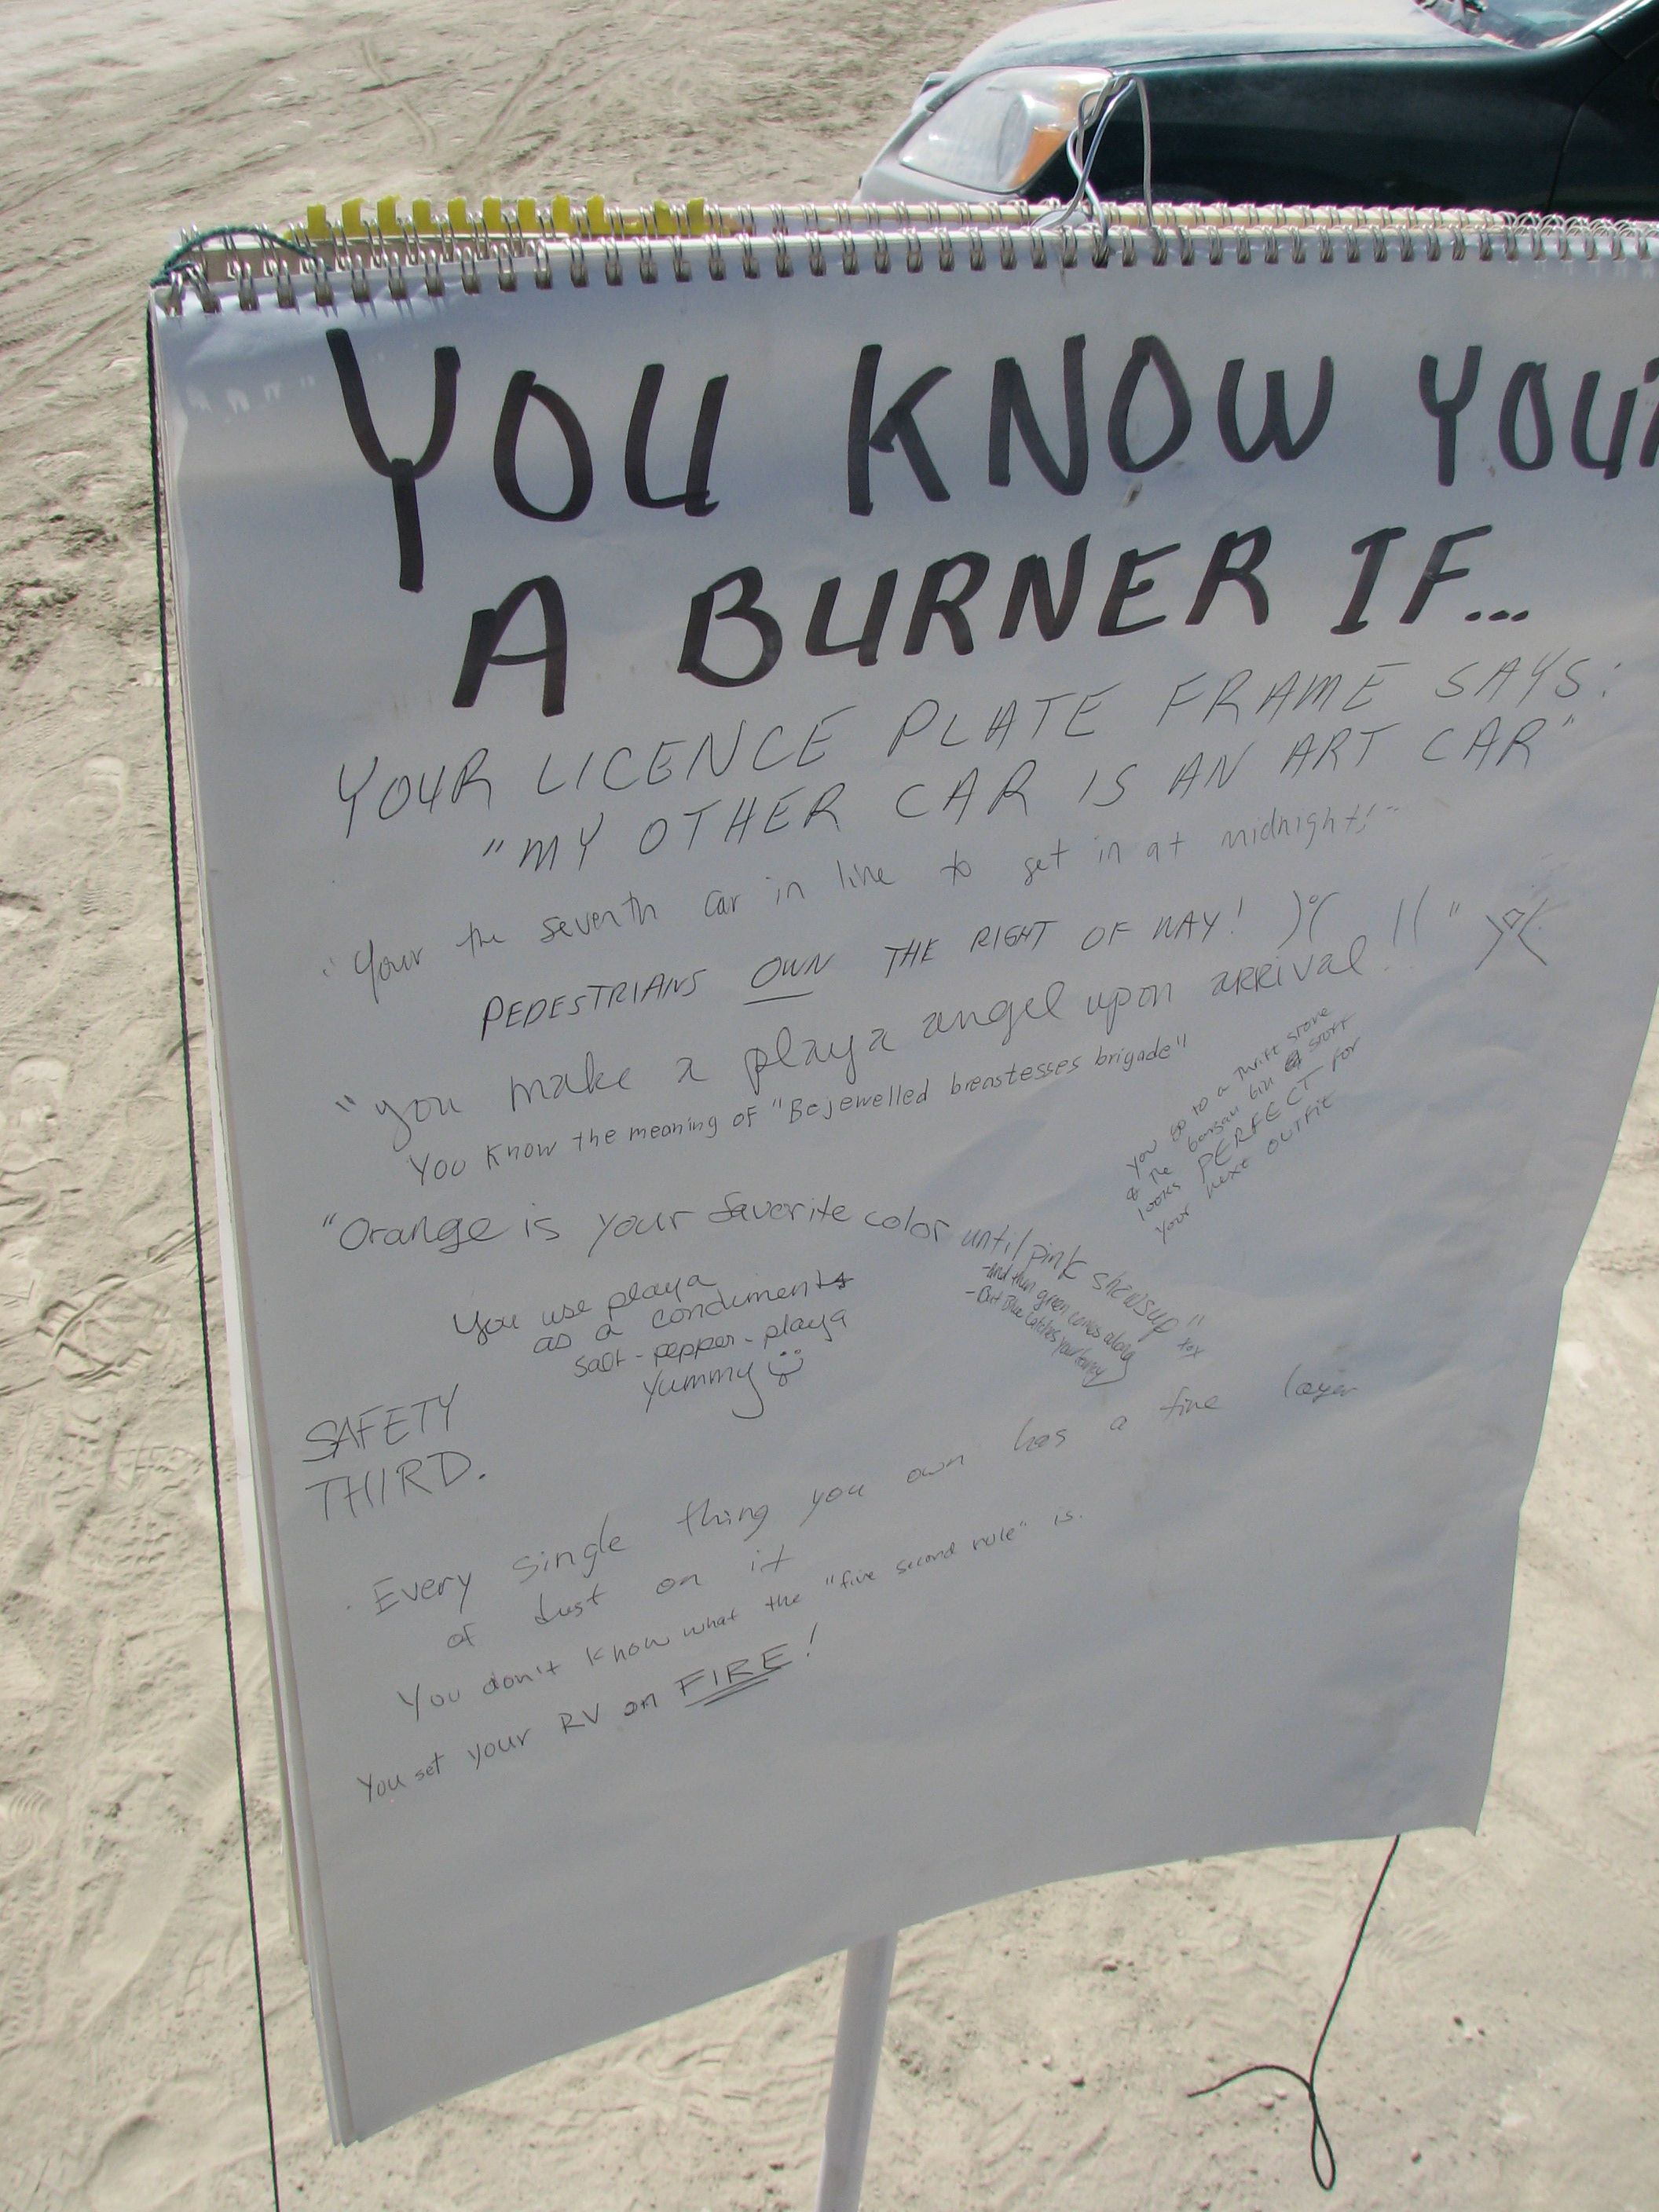 YOU KNOW YOUR
A BURNER IF...
YOUR LICENCE PLATE FRAME SAYS:
"MY OTHER CAR IS AN ART CAR"
"Your the seventh car in line to get in at midnight!...
PEDESTRIANS OWN THE RIGHT OF WAY! )°(
"you make a playa angel upon arrival!!("
You know the meaning of "Bejewelled breastesses brigade"
you go to a thrift store
& the bargain bin of stuff
looks PERFECT for
your next outfit
"Orange is your favorite color until pink shows up" xox
-and then green comes along
-But Blue catches your fancy
You use playa
as a condiment
salt-pepper-playa
yummy
SAFETY
THIRD.
Every single thing you own has a fine layer
of dust on it
You don't know what the "five second rule" is.
You set your RV on FIRE!